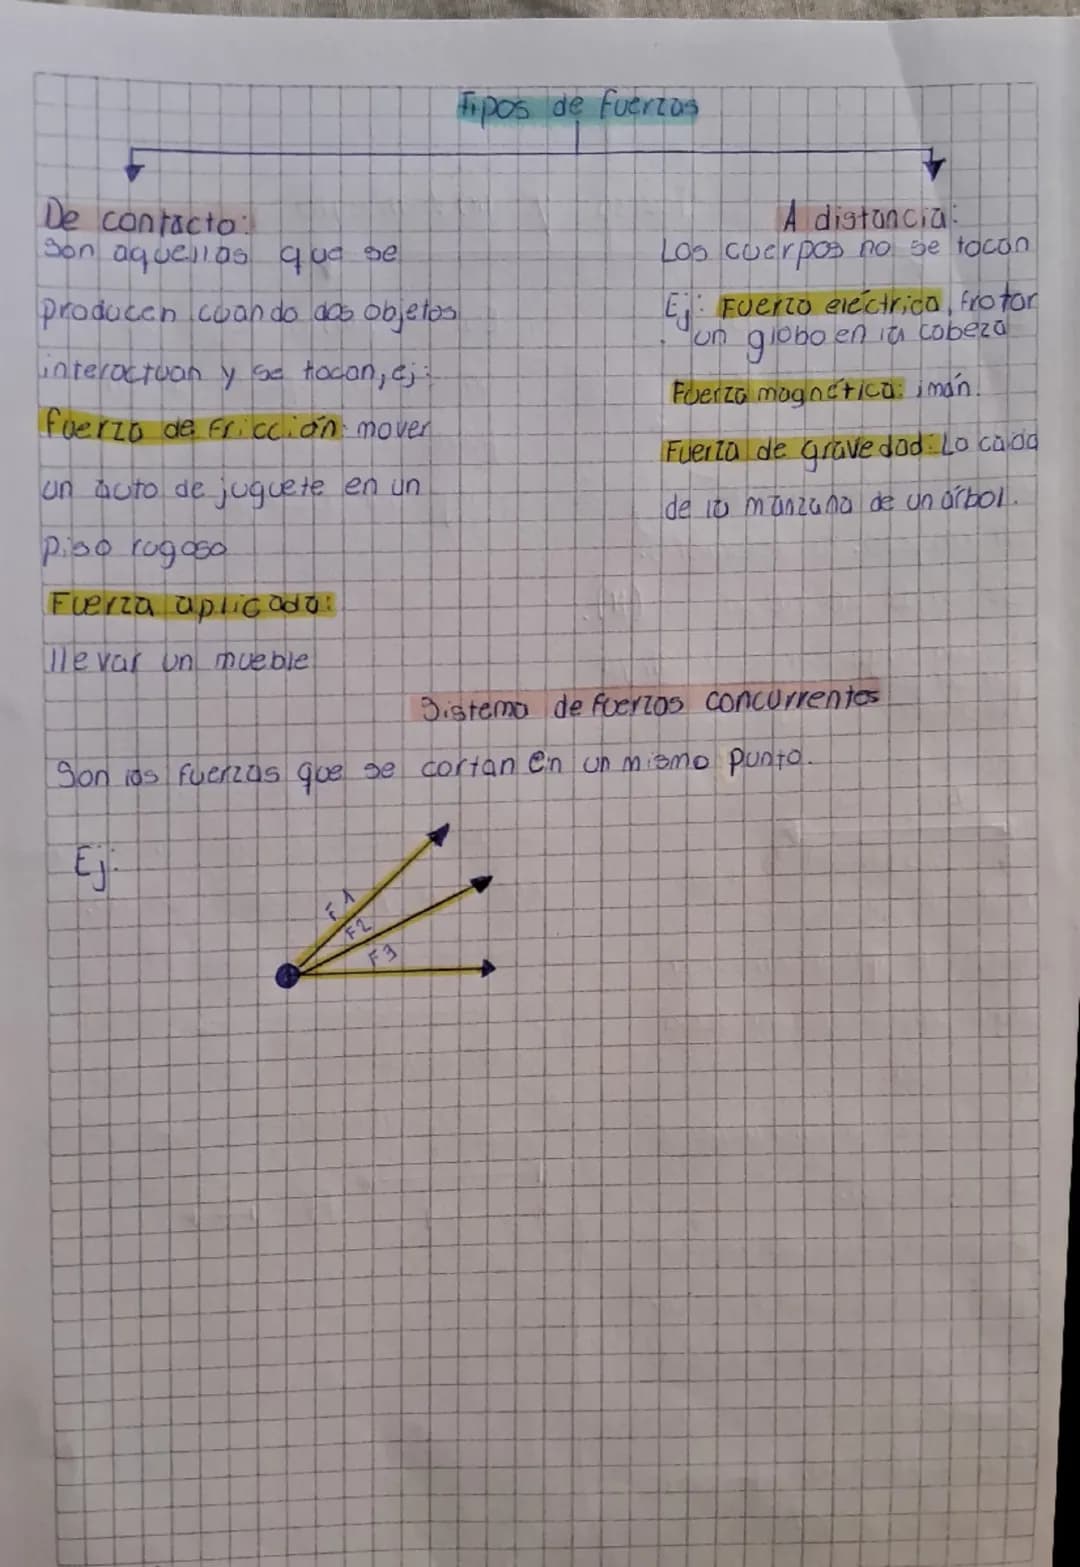 Tipos de fuerzas
De contacto:
Son aquellas que se
producen cuando dos objetos
interactuan y se tocan, ej:
fuerza de Fricción: mover
un auto de juguete en un
piso rugoso
Fuerza aplicada:
llevar un mueble
A distancia:
Los cuerpos no se tocan
Ej: Fuerza eléctrica, frotar
un globo en la cabeza
Fuerza magnética: imán.
Fuerza de gravedad: La caída
de la manzana de un árbol.
Sistema de fuerzas concurrentes
Son las fuerzas que se cortan en un mismo punto.
Ej:
F1
F2
F3